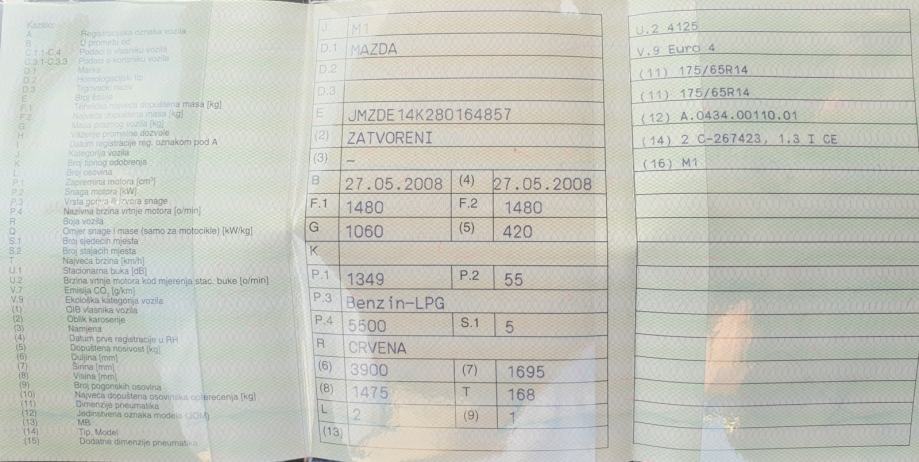 Kazalo:
A Registracijska oznaka vozila
B U prometu od
C.1.1-C.4 Podaci o vlasniku vozila
C.3.1-C.3.3 Podaci o korisniku vozila
D.1 Marka
D.2 Homologacijski tip
D.3 Trgovački naziv
E Broj šasije
F.1 Tehnički najveća dopuštena masa [kg]
F.2 Najveća dopuštena masa [kg]
G Masa praznog vozila [kg]
H Važenje prometne dozvole
I Datum registracije reg. oznakom pod A
J Kategorija vozila
K Broj tipnog odobrenja
L Broj osovina
P.1 Zapremina motora [cm³]
P.2 Snaga motora [kW]
P.3 Vrsta goriva ili izvora snage
P.4 Nazivna brzina vrtnje motora [o/min]
R Boja vozila
Q Omjer snage i mase (samo za motocikle) [kW/kg]
S.1 Broj sjedećih mjesta
S.2 Broj stajaćih mjesta
T Najveća brzina [km/h]
U.1 Stacionarna buka [dB]
U.2 Brzina vrtnje motora kod mjerenja stac. buke [o/min]
V.7 Emisija CO₂ [g/km]
V.9 Ekološka kategorija vozila
(1) OIB vlasnika vozila
(2) Oblik karoserije
(3) Namjena
(4) Datum prve registracije u RH
(5) Dopuštena nosivost [kg]
(6) Duljina [mm]
(7) Širina [mm]
(8) Visina [mm]
(9) Broj pogonskih osovina
(10) Najveća dopuštena osovinska opterećenja [kg]
(11) Dimenzije pneumatika
(12) Jedinstvena oznaka modela (JOM)
(13) MB
(14) Tip, Model
(15) Dodatne dimenzije pneumatika
J M1
D.1 MAZDA
D.2
D.3
E JMZDE14K280164857
(2) ZATVORENI
(3) –
B 27.05.2008 (4) 27.05.2008
F.1 1480 F.2 1480
G 1060 (5) 420
K
P.1 1349 P.2 55
P.3 Benzin-LPG
P.4 5500 S.1 5
R CRVENA
(6) 3900 (7) 1695
(8) 1475 T 168
L 2 (9) 1
(13)
U.2 4125
V.9 Euro 4
(11) 175/65R14
(11) 175/65R14
(12) A.0434.00110.01
(14) 2 C-267423, 1.3 I CE
(16) M1